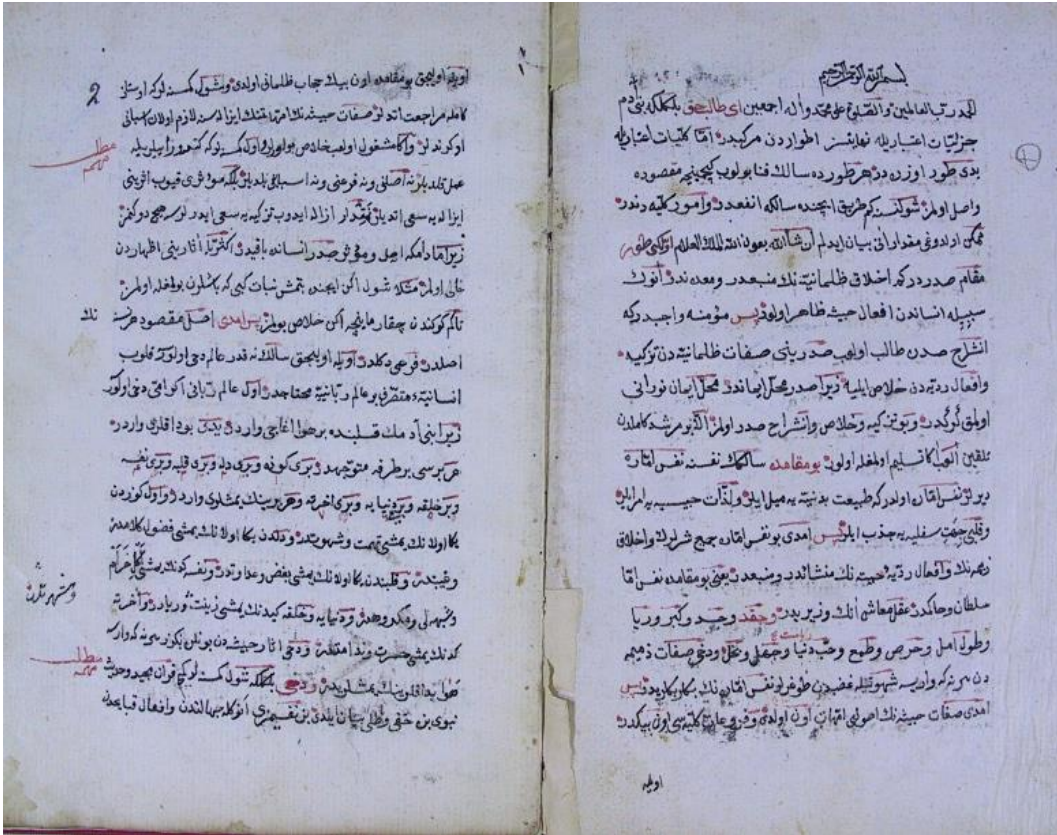 بسم الله الرحمن الرحيم
الحمد رب العالمين والصلوة على محمد واله اجمعين اى طالب حق بلكلكه بنى آدم
جزئيات اعتباريله نهايتسز اطواردن مركبدر اما كليات اعتباريله
يدى طور اوزرندر هر طورده سالك فنا بولوب كچمينجه مقصوده
واصل اولمز شول نسنه كم طريق ايچنده سالكه انفعدر وامور كليه دندر
ممكن اولدوغى مقدارانى بيان ايدلم ان شاء الله بعون الله الملك العلام
مقام صدردركه اخلاق ظلمانيه نك منبعدر ومعدنندر انوك
سببيله انساندن افعال خبيثه ظاهر اولور پس مؤمنه واجبدركه
انشراح صدره طالب اولوب صدرينى صفات ظلمانيه دن تزكيه
وافعال رديه دن خلاص ايليه زيرا صدر محل ايماندر محل ايمان نورانى
اولمق كركدر وبو تزكيه وخلاص وانشراح صدر اولمز الا بر مرشد كاملدن
تلقين آلوب اكا تسليم اولمغله اولور بو مقامده سالكك نفسنه نفس اماره
ديرلر نفس اماره اولدركه طبيعت بدنيه يه ميل ايلر ولذات حسيه يه امر ايلر
وقلبى جهت سفليه يه جذب ايلر پس امدى بو نفس اماره جميع شرلرك واخلاق
ذميمه نك وافعال رديه خبيثه نك منشائدر ومنبعدر يعنى بو مقامده نفس اماره
سلطان وحاكمدر عقل معاش انك وزيريدر وحقد وحسد وكبر وريا
وطول امل وحرص وطمع وحب دنيا وحب رياست وجهل وبخل ودخى صفات ذميمه
دن هر نه كه وار ايسه شهوتيله غضبدن طوغرلر نفس اماره نك
امدى صفات خبيثه نك اصولى امهاتى اون اولدى وفروعاتى كليه سى اون بيكدر
اويله
2
اويله اوليجق بو مقامده اون بيك حجاب ظلمانى اولدى وشول كمسنه لركه اوستاذ
كامله مراجعت اتديلر صفات خبيثه نك ازاله سنه لازم اولان اسبابى
اوكرنديلر واكا مشغول اولوب خلاص بولورلر واول كمسنه لركه كندو رأيلريله
عمل قلديلر نه اصلنى ونه فرعنى ونه اسبابنى بلديلر بلكه مؤثرى قيوب اثرينى
ازاله يه سعى اتديلر نقدر ازاله ايدوب تزكيه يه سعى ايدرلرسه هيچ دوكنمز
زيرا مادامكه اصل ومؤثر صدر انسانده باقيدر اكثريا آثارينى اظهاردن
خالى اولمز مثلا شول اكن ايچنده بتمش نبات كبى كه باشلرن يولمغله اولمز
تاكم كوكندن چقارماينجه اكن خلاص بولمز پس امدى اصل مقصود هر نسنه نك
اصلدر فرعى دكلدر اويله اوليجق سالك نه قدر عالم دخى اولورسه قلوب
انسانيه متصرف بر عالم ربانيه محتاجدر اول عالم ربانى اكر امى دخى اولور
زيرا بنى آدمك قلبنده بر خوا اغاجى واردر يدى بوداقلرى واردر
هر بريسى بر طرفه متوجهدر برى كوزه وبرى دله وبرى قلبه وبرى نفسه
وبرى خلقه وبرى دنيايه وبرى آخرته وهر برينك يمشلرى واردر واول كوزدن
يكا اولانك يمشى تهمت وشهوتدر ودلدن يكا اولانك يمشى فضول كلامدر
وغيبتدر وقلبدن يكا اولانك يمشى بغض وعداوتدر ونفسه كدنك يمشى حرام
ومشتهياتدر
وشبهه لى ومكروهدر ودنيايه وخلقه كيدنك يمشى زينت وريادر وآخرته
كدنك يمشى حسرت وندامتدر ودخى آثار خبيثه دن بونلره بكزر هر نه كه وارسه
بوداقلرينك يمشلريدر ودخى بلكلكه شول كمسنه لركه قرآن مجيد وحديث
نبوى بن خفى وجلى بيان ايلدى
مطلب مهم
مطلب مهم